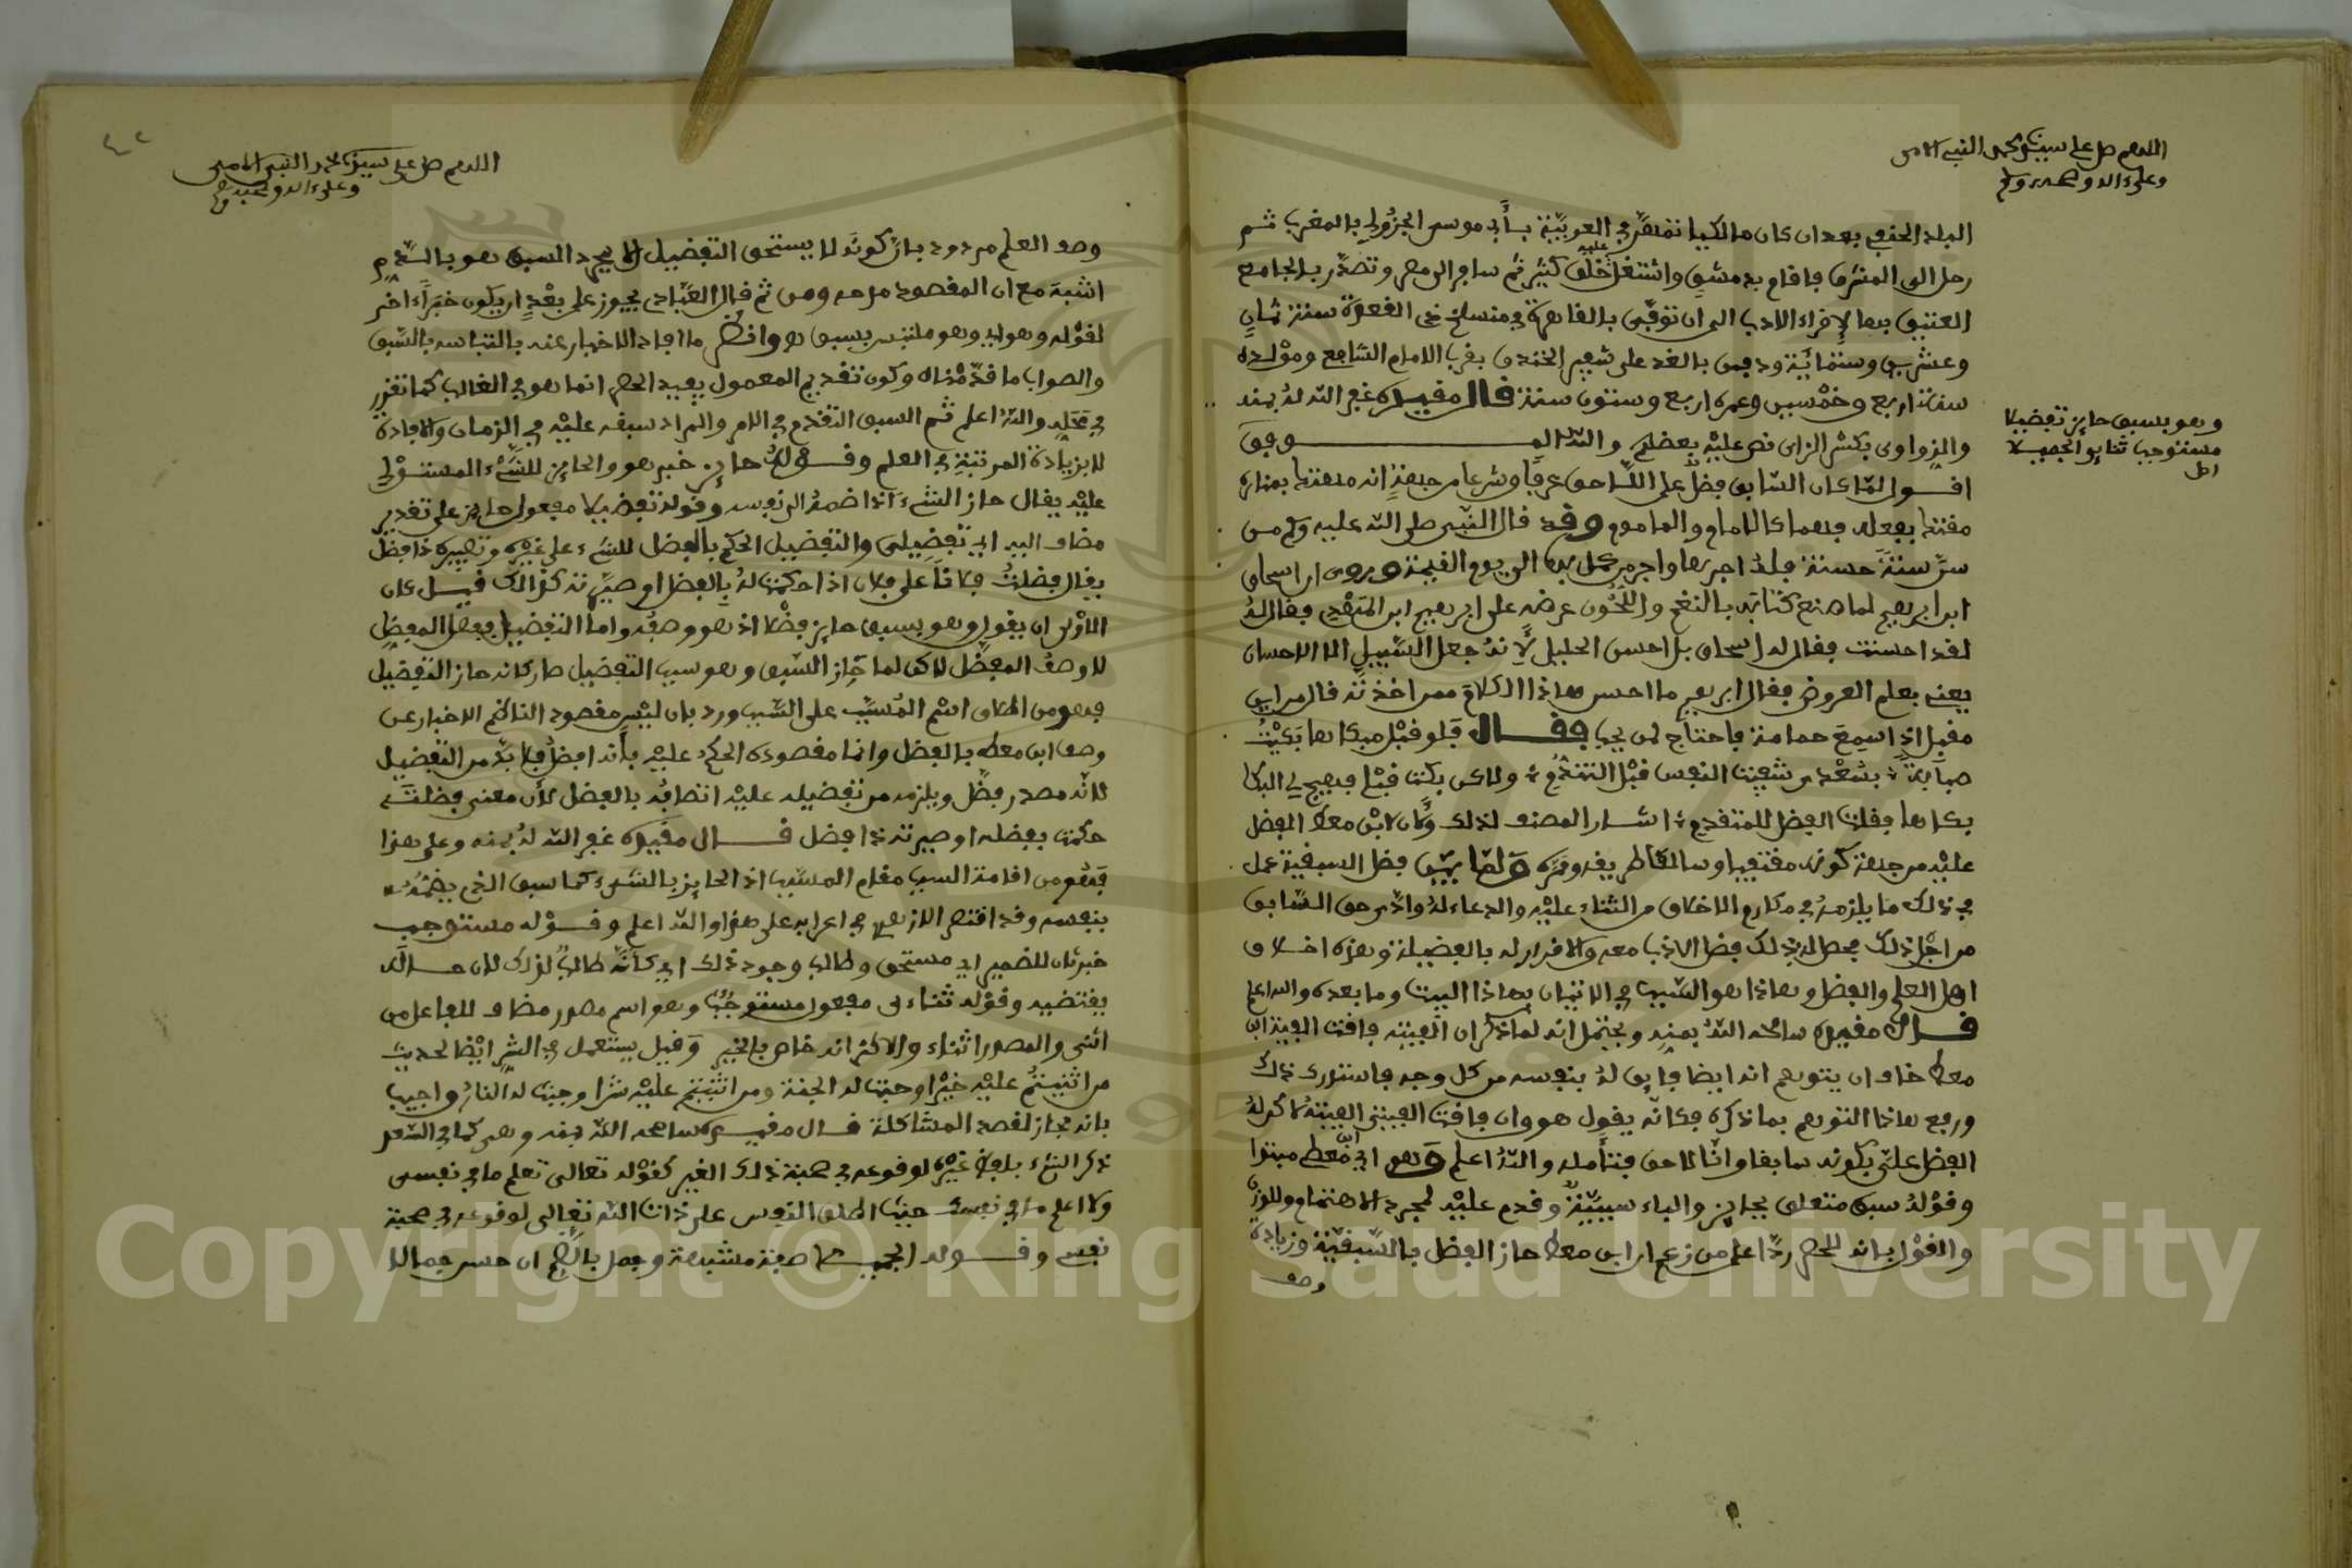 اللهم صل على سيدنا محمد النبي الامي
وعلى ءاله وصحبه وسلم
البلد الحنفي بعد ان كان مالكيا تفقه في العربية بأبي موسى الجزولي بالمغرب ثم
رحل الى المشرق فاقام بدمشق واشتغل عليه خلق كثير ثم سافر الى مصر وتصدر بالجامع
العتيق بها لإقراء الادب الى ان توفي بالقاهرة في منسلخ ذي القعدة سنة ثمان
وعشرين وستمائة ودفن بالغد على شفير الخندق بقرب الامام الشافعي ومولده
سنة اربع وخمسين وعمره اربع وستون سنة قال مقيده غفر الله له بمنه
والزواوي بكسر الزاي نص عليه بعضهم والله الموفق
وهو بسبق حايز تفضيلا
مستوجب ثنايي الجميلا
اقول لما كان السابق فضل على اللاحق عرفا وشرعا من جهة انه منعته بمناره
مقتد بفعله فهما كالامام والماموم وقد قال النبي صلى الله عليه وسلم من
سن سنة حسنة فله اجرها واجر من عمل بها الى يوم القيمة وروي ان اسحاق
ابن ابرهيم لما صنع كتابه بالنغم واللحون عرضه على ابرهيم ابن المهدي فقال له
لقد احسنت فقال له اسحاق بل احسن الخليل لأنه جعل السبيل الى الاحسان
يعني بعلم العروض فقال ابرهيم ما احسن هاذا الكلام ممن اخذته قال من ابن
مقبل اذ سمع حمامة فاحتاج لمن يحب فقال فلو قبل مبكاها بكيت
صبابة بسعدى شفيت النفس قبل التندم ولاكن بكت قبلي فهيج لي البكا
بكاها فقلت الفضل للمتقدم اشار المصنف لذلك وكان لابن معط الفضل
عليه من جهة كونه مقتفيا وسالكا طريقه ونحوه ولما بين فضل السبقية عمل
في ذلك ما يلزمه في مكارم الاخلاق من الثناء عليه والدعاء له واداء حق السابق
من اجل ذلك فحصل له بذلك فضل الادب معه والاقرار له بالفضيلة وهذه اخلاق
اهل العلم والفضل وهاذا هو السبب في الاتيان بهاذا البيت وما بعده والله اعلم
قال مقيده سامحه الله بمنه ويحتمل انه لما ذكر ان الفيته فاقت الفية ابن
معط خاف ان يتوهم انه ايضا فايق له بنفسه من كل وجه فاستدرك ذلك
ورفع هاذا التوهم بما ذكره فكانه يقول هو وان فاقت الفيتي الفيته لاكن له
الفضل علي بكونه سابقا وانا لاحق فتأمله والله اعلم وهو اي ابن معط مبتدا
وقوله سبق متعلق بحايز والباء سببية وقدم عليه لمجرد الاهتمام وللوزن
والقول بانه للحصر ردا على من زعم ان ابن معط حاز الفضل بالسبقية وزيادة
وصف
اللهم صل على سيدنا محمد النبي الامي
وعلى ءاله وصحبه وسلم
وصف العلم مردود بان كونه لا يستحق التفضيل الا بمجرد السبق هو بالذم
اشبه مع ان المقصود مدحه ومن ثم قال العبادي يجوز على بعد ان يكون خبرا ءاخر
لقوله وهو اي وهو ملتبس بسبق هو وانظر ما افاد الاخبار عنه بالتباسه بالسبق
والصواب ما قدمناه وكون تقديم المعمول يفيد الحصر انما هو في الغالب كما تقرر
في محله والله اعلم ثم السبق التقدم في الامر والمراد سبقه عليه في الزمان والافادة
لا بزيادة المرتبة في العلم وقوله حايز خبر هو والحايز للشيء المستولي
عليه يقال حاز الشيء اذا ضمه الى نفسه وقوله تفضيلا مفعول حايز على تقدير
مضاف اليه اي تفضيلي والتفضيل الحكم بالفضل للشيء على غيره وتصييره ذا فضل
يقال فضلت فلانا على فلان اذا حكمت له بالفضل او صيرته كذالك قيل كان
الاولى ان يقول وهو بسبق حايز فضلا اذ هو وصفه واما التفضيل ففعل المفضل
لا وصف المفضل لاكن لما حاز السبق وهو سبب التفضيل صار كانه حاز التفضيل
فهو من اطلاق اسم المسبب على السبب ورد بان ليس مقصود الناظم الاخبار عن
وصف ابن معط بالفضل وانما مقصوده الحكم عليه بأنه افضل فلا بد من التفضيل
لانه مصدر فضل ويلزمه من تفضيله عليه اتصافه بالفضل لأن معنى فضلته
حكمت بفضله او صيرته ذا فضل قال مقيده غفر الله له بمنه وعلى هذا
فهو من اقامة السبب مقام المسبب اذ الحايز بالشيء كما سبق الذي يضمه
بنفسه وقد اقتصر الازهري في اعرابه على هذا والله اعلم وقوله مستوجب
خبر ثان للضمير اي مستحق وطالب وجود ذلك اي كأنه طالب لذلك لان حاله
يقتضيه وقوله ثناءى مفعول مستوجب وهو اسم مصدر مضاف للفاعل من
اثنى والمصدر اثناء والاكثر انه خاص بالخير وقيل يستعمل في الشر ايضا لحديث
من اثنيتم عليه خيرا وجبت له الجنة ومن اثنيتم عليه شرا وجبت له النار واجيب
بانه مجاز لقصد المشاكلة قال مقيده سامحه الله بمنه وهي كما في السعد
ذكر الشيء بلفظ غيره لوقوعه في صحبة ذلك الغير كقوله تعالى تعلم ما في نفسي
ولا اعلم ما في نفسك حيث اطلق النفس على ذات الله تعالى لوقوعه في صحبة
نفسي وقوله الجميلا صفة مشبهة وجمل بالضم ان حسن جمالا